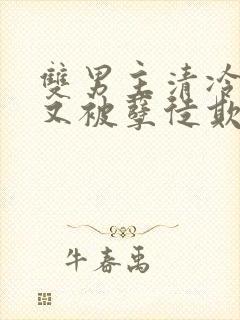 雙男主清冷
又被孽徒欺
牛春禹